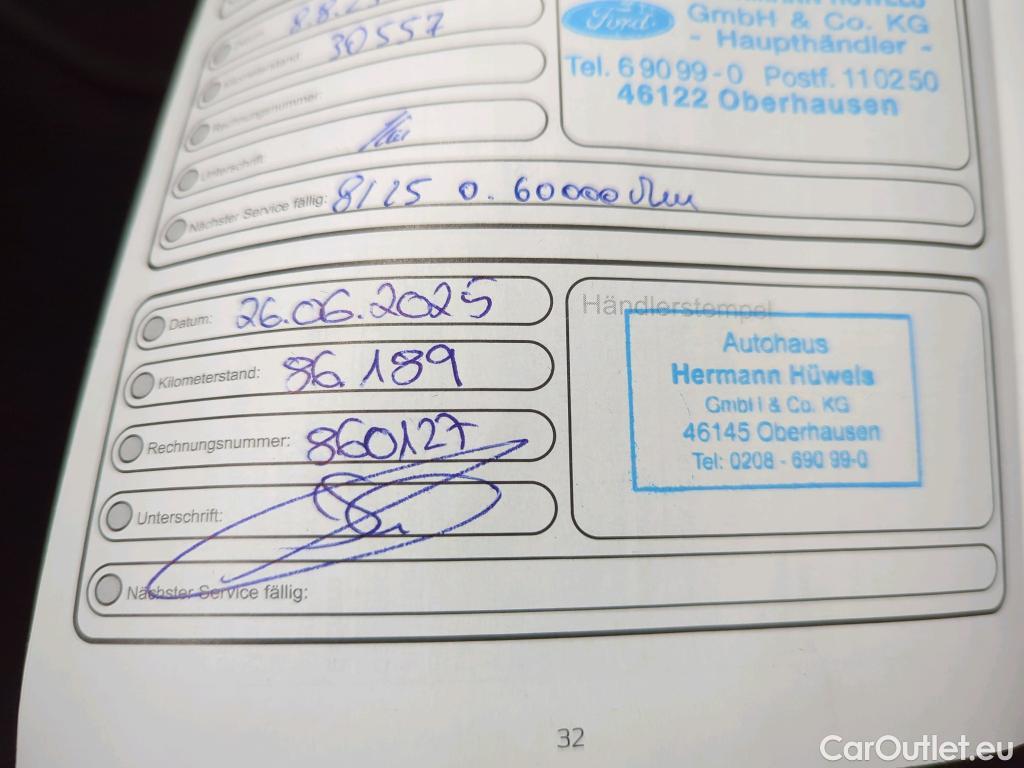 Ford
GmbH & Co. KG
- Haupthändler -
Tel. 69099-0 Postf. 110250
46122 Oberhausen
Datum:
8.8.2
Kilometerstand:
30557
Rechnungsnummer:
Unterschrift:
Nächster Service fällig: 8/25 o. 60000
Datum: 26.06.2025
Kilometerstand: 86.189
Rechnungsnummer: 860127
Unterschrift:
Nächster Service fällig:
Händlerstempel
Autohaus
Hermann Hüwels
GmbH & Co. KG
46145 Oberhausen
Tel: 0208 - 690 99-0
32
CarOutlet.eu